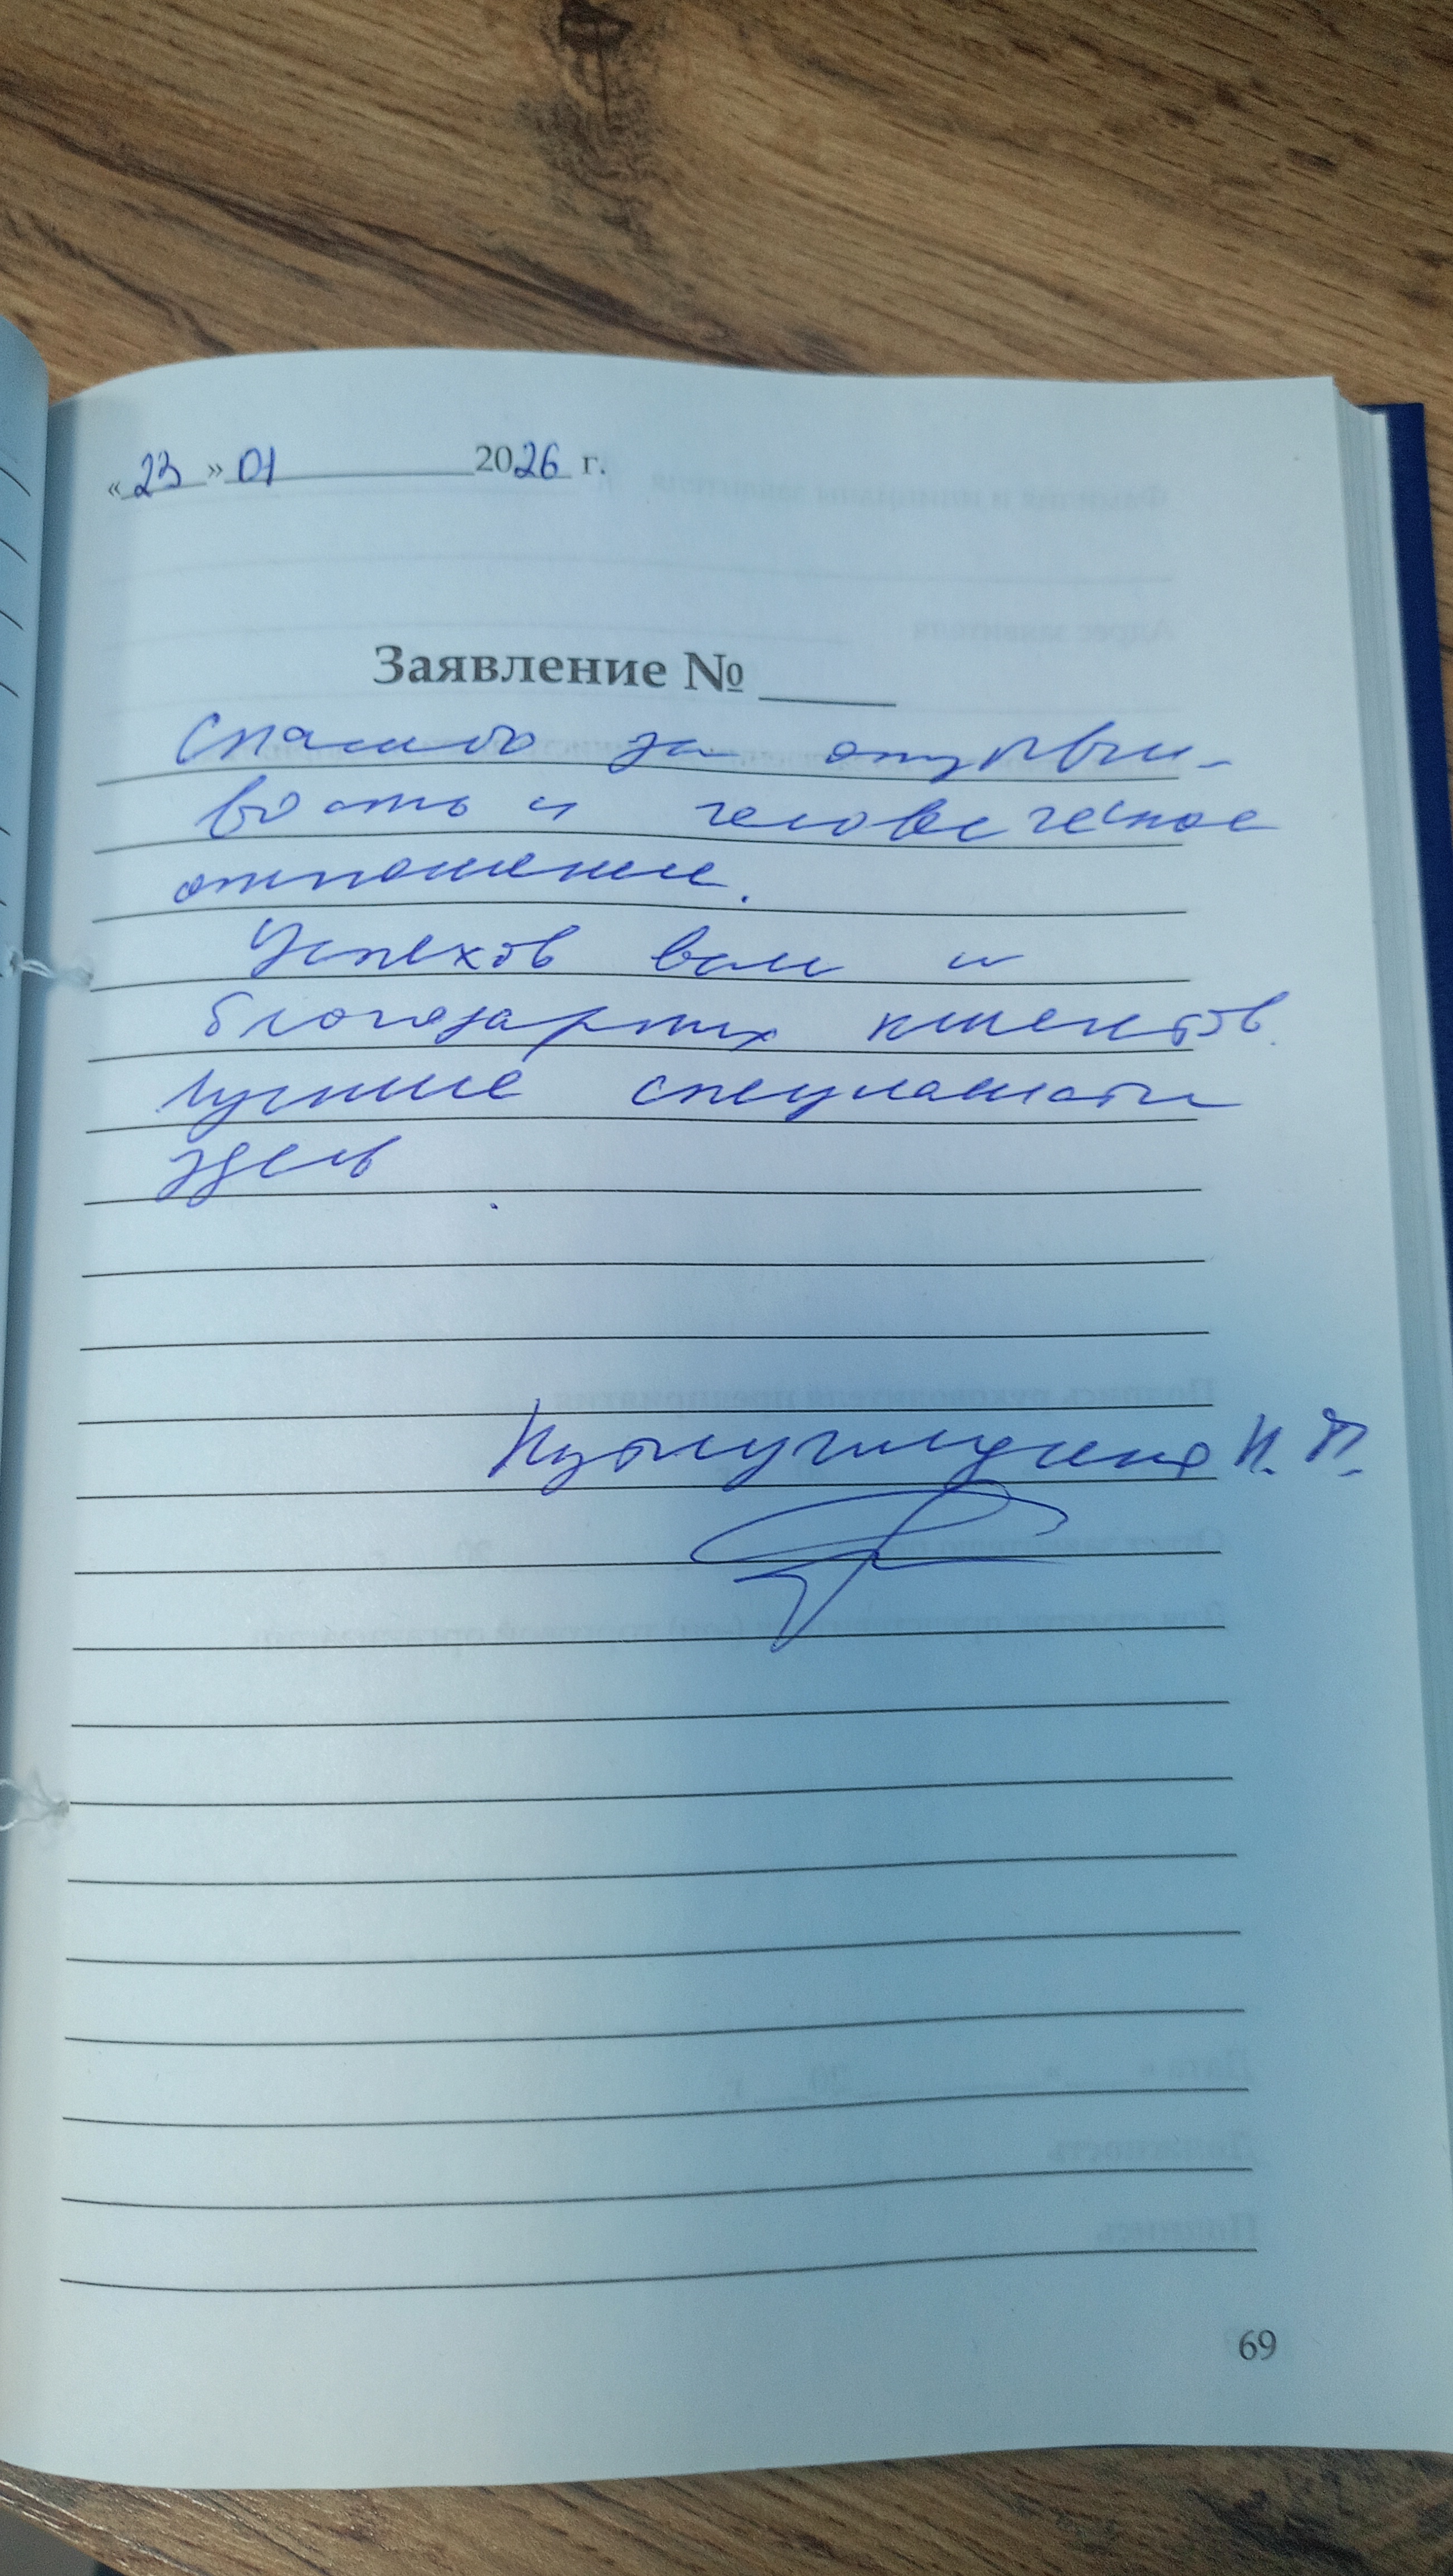 «23» 01 2026 г.
Заявление №
Спасибо за отзывчи-
вость и человеческое
отношение.
Успехов вам и
благодарных клиентов.
Лучшие специалисты
здесь.
Н. П.
69